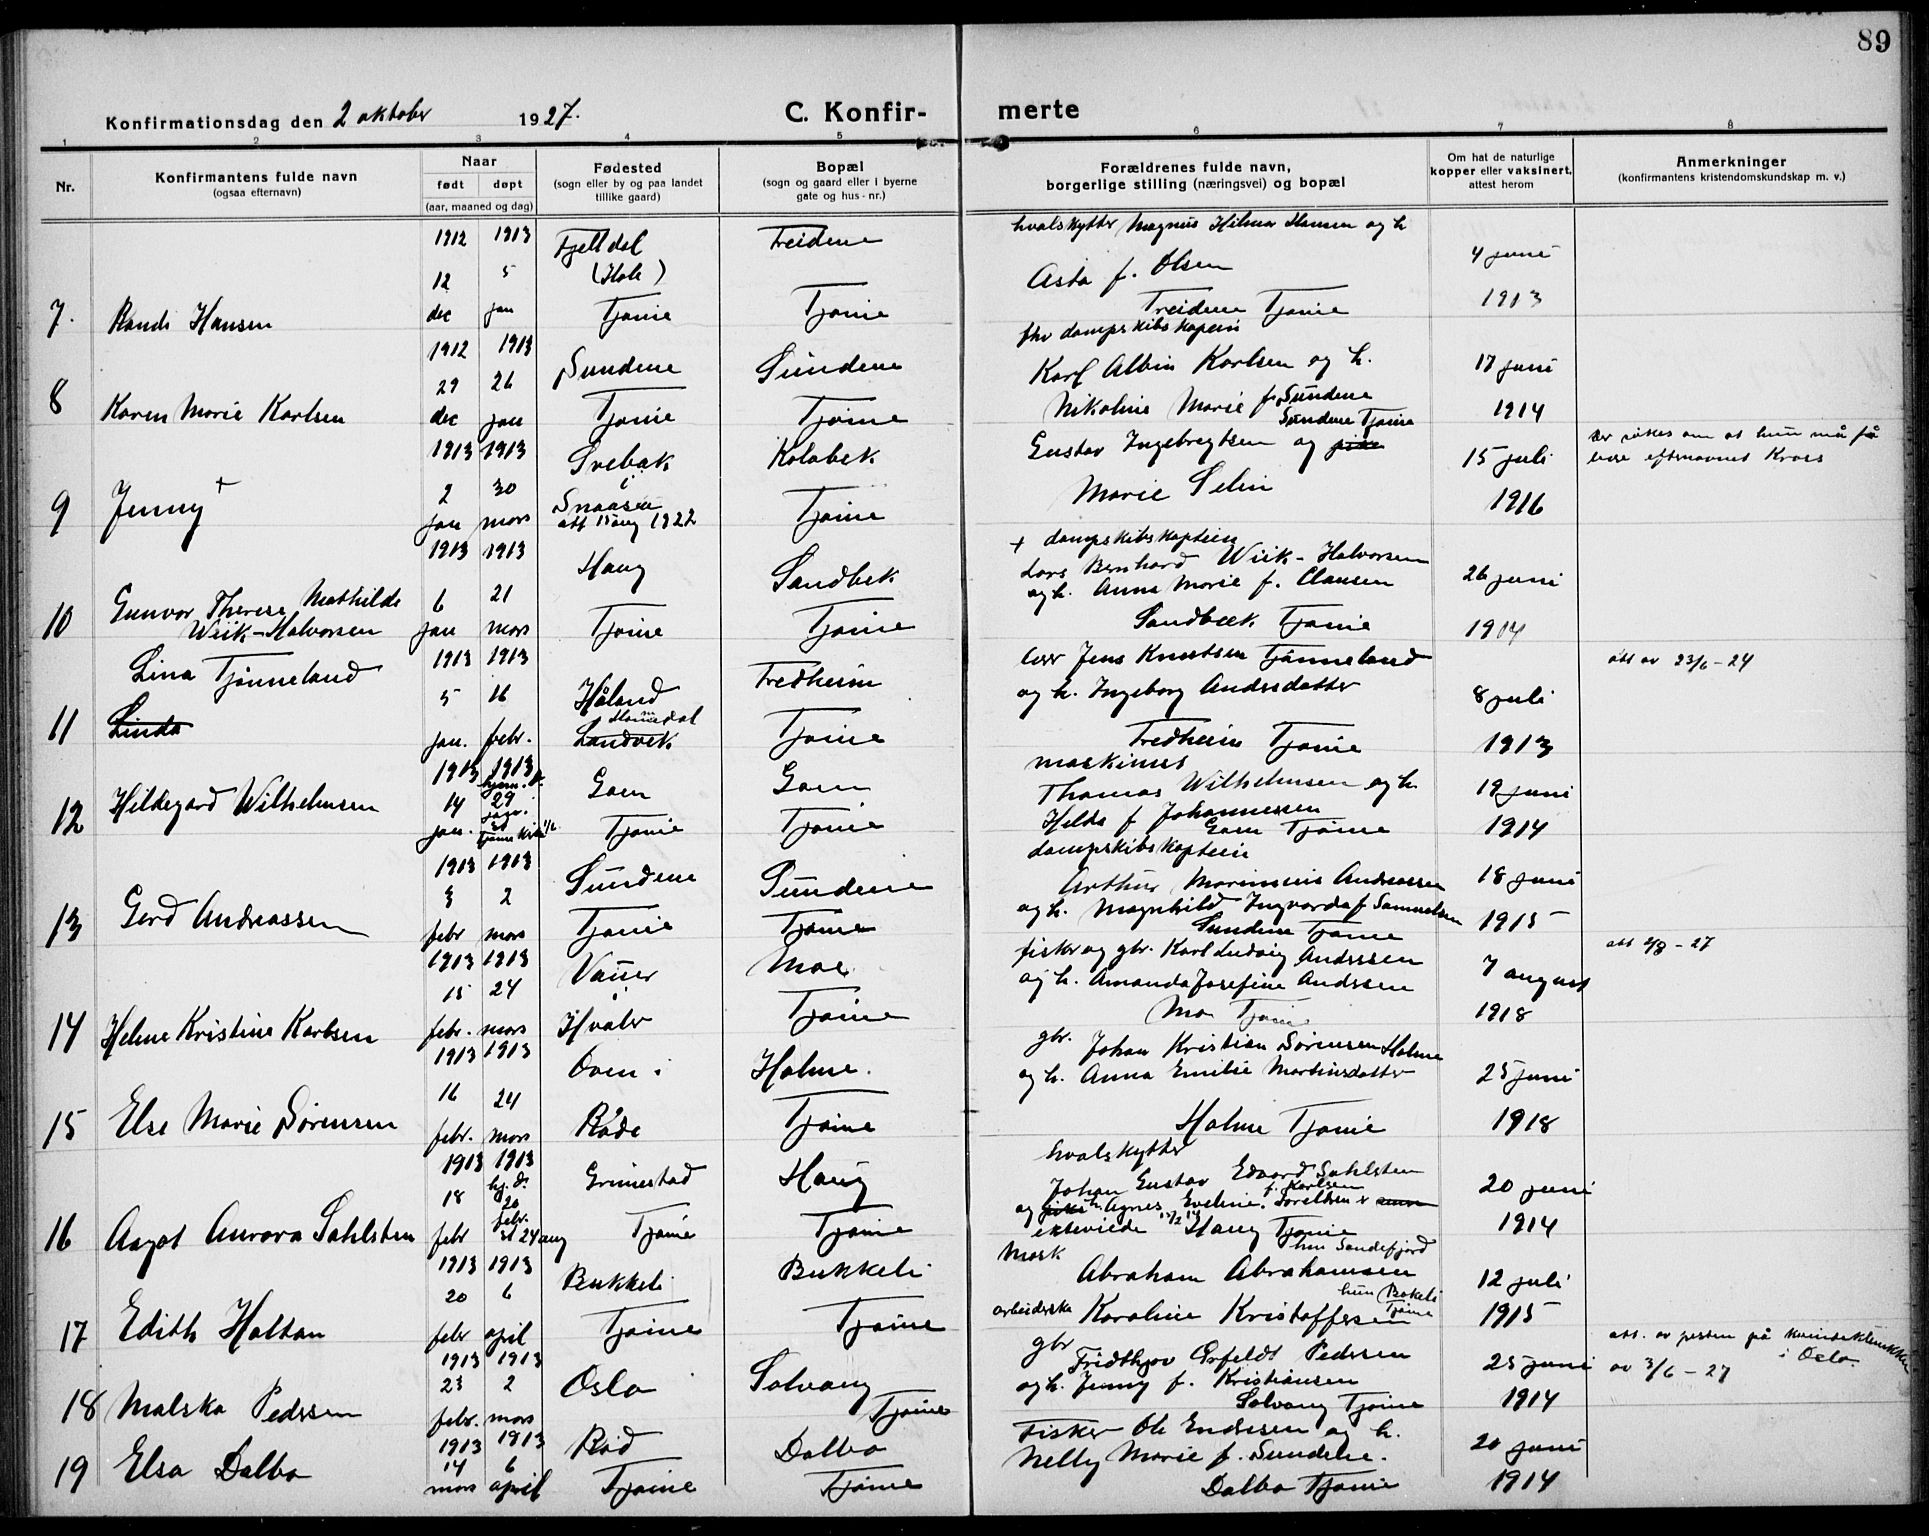 89
Konfirmationsdag den 2 oktober 1927.
C. Konfirmerte
1 2 3 4 5 6 7 8
Nr.
Konfirmantens fulde navn
(ogsaa efternavn)
Naar
født døpt
(aar, maaned og dag)
Fødested
(sogn eller by og paa landet
tillike gaard)
Bopæl
(sogn og gaard eller i byerne
gate og hus-nr.)
Forældrenes fulde navn,
borgerlige stilling (næringsvei) og bopæl
Om hat de naturlige
kopper eller vaksinert,
attest herom
Anmerkninger
(konfirmantens kristendomskundskap m. v.)
1912 1913 Fjelldal Treidene hvalskytter Magnus Hilmar Hansen og h
12 5 Asta f. Olsen 4 juni
7. Randi Hansen dec jan Tjøme Tjøme Treidene Tjøme 1913
fhv dampskibskaptein
1912 1913 Sundene Sundene Karl Albin Karlsen og h. 17 juni
29 26
8 Karen Marie Karlsen dec jan Tjøme Tjøme Nikoline Marie f. Sundene 1914
Sundene Tjøme
1913 1913 Svebak Kolabek Gustav Ingebregtsen og pike 15 juli
2 30 i Marie Selin
9 Jenny + jan mars Snaasen Tjøme 1916
att 15 aug 1922
+ dampskibskaptein
1913 1913 Haug Sandbek Lars Bernhard Wiik-Halvorsen
6 21 og h. Anna Marie f. Clausen 26 juni
10 Gunvor Therese Mathilde
Wiik-Halvorsen jan mars Tjøme Tjøme Sandbæk Tjøme 1914
Lina Tjønneland 1913 1913 Håland Fredheim Jens Knutsen Tjønneland att av 23/6-24
5 16 og h. Ingeborg Andersdatter 8 juli
11 Linda jan. febr. Landvik Tjøme Fredheim Tjøme 1913
maskinist
1913 1913 Gaen Gaen Thomas Wilhelmsen og h. 19 juni
14 29
12 Hildegard Wilhelmsen jan. Tjøme Tjøme Hilda f Johannessen
Tjøme kirke Gaen Tjøme 1914
dampskibskaptein
1913 1913 Sundene Sundene Arthur Marensius Andreassen 18 juni
3 2 og h. Magnhild Ingvarda f Samuelsen
13 Gerd Andreassen febr mars Tjøme Tjøme Sundene Tjøme 1915
1913 1913 Vauer Moe fisker og gbr. Karl Ludvig Anderssen att 2/8-27
15 24 i og h. Amanda Josefine Anderssen 7 august
14 Helene Kristine Karlsen febr. mars Hvaler Tjøme Mo Tjøme 1918
1913 1913 Oven i Holme. gbr. Johan Kristian Sørensen Holme
16 24 og h. Anna Emilie Martinsdatter 25 juni
15 Else Marie Sørensen febr. mars Råde Tjøme Holme Tjøme 1918
hvalskytter
1913 1913 Grimestad Haug Johan Gustav Edvard Sahlsten 20 juni
18 hj. d. 20 og pike h. Agnes Eveline f. Karlsen
16 Aagot Aurora Sahlsten febr febr. st 24 aug Tjøme Tjøme ekteviede Haug Tjøme 1914
mask
1913 1913 Bukkeli Bukkeli Abraham Abrahamsen han Sandefjord 12 juli
20 6
17 Edith Holtan febr april Tjøme Tjøme arbeiderske Karoline Kristoffersen hun Bokeli Tjøme 1915
gbr att. av presten på kvindeklinikken
1913 1913 Oslo Solvang Fridthjov Erfeldt Pederssen 25 juni i Oslo
23 2 og h. Jenny f. Kristiansen av 3/6-27
18 Malska Pederssen febr. mars Tjøme Solvang Tjøme 1914
1913 1913 Rød Dalbo Fisker Ole Endresen og h.
14 6 Nelly Marie f. Sundelie. 20 juni
19 Elsa Dalbo mars april Tjøme Tjøme Dalbo Tjøme 1914